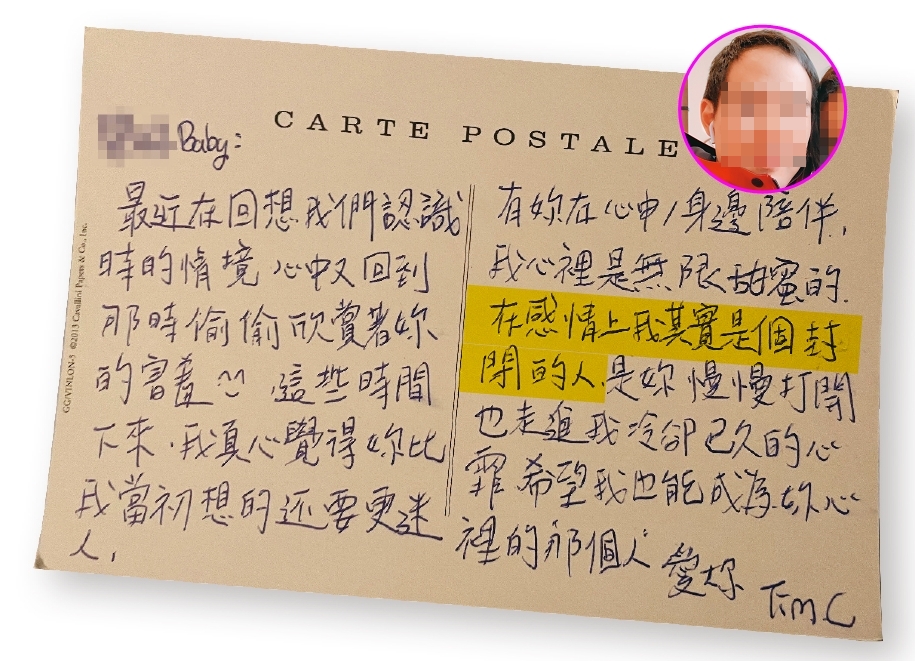 CARTE POSTALE
Baby:
最近在回想我們認識
時的情境 心中又回到
那時偷偷欣賞著妳
的害羞~ 這些時間
下來,我真心覺得妳比
我當初想的还要更迷
人,
有妳在心中/身邊陪伴,
我心裡是無限甜蜜的.
在感情上我其實是個封
閉的人,是妳慢慢打開
也走進我冷卻已久的心
霏 希望我也能成為妳心
裡的那個人 愛妳
Tim C
GG/VINLON-5 ©2013 Cavallini Papers & Co., Inc.